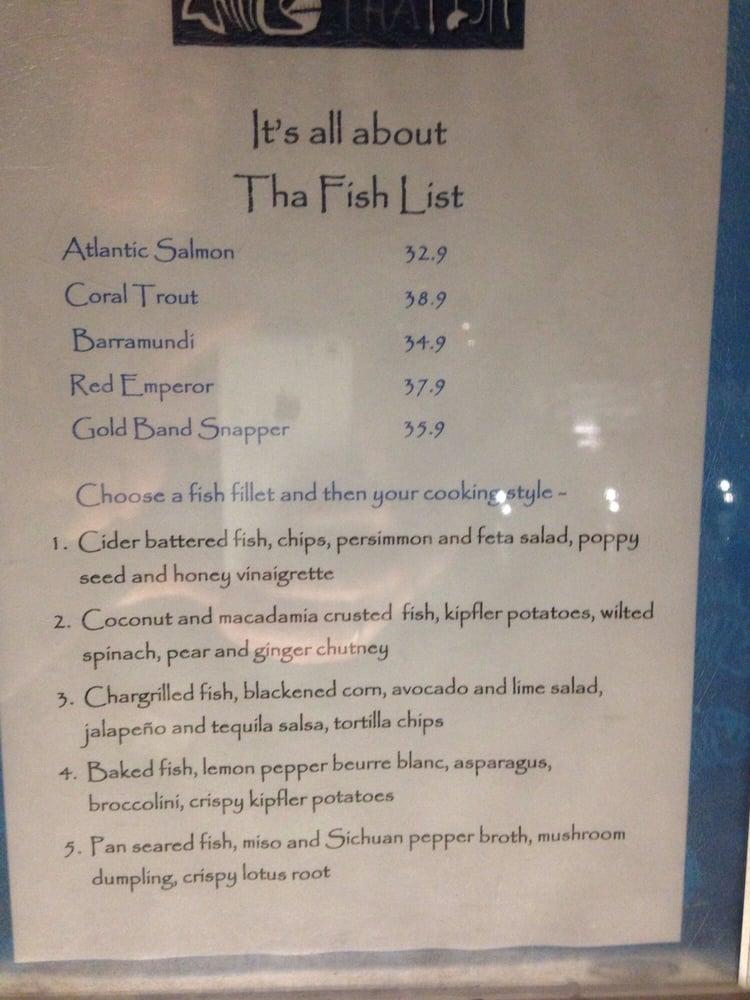 THA FISH
It's all about
Tha Fish List
Atlantic Salmon 32.9
Coral Trout 38.9
Barramundi 34.9
Red Emperor 37.9
Gold Band Snapper 35.9
Choose a fish fillet and then your cooking style -
1. Cider battered fish, chips, persimmon and feta salad, poppy
seed and honey vinaigrette
2. Coconut and macadamia crusted fish, kipfler potatoes, wilted
spinach, pear and ginger chutney
3. Chargrilled fish, blackened corn, avocado and lime salad,
jalapeño and tequila salsa, tortilla chips
4. Baked fish, lemon pepper beurre blanc, asparagus,
broccolini, crispy kipfler potatoes
5. Pan seared fish, miso and Sichuan pepper broth, mushroom
dumpling, crispy lotus root